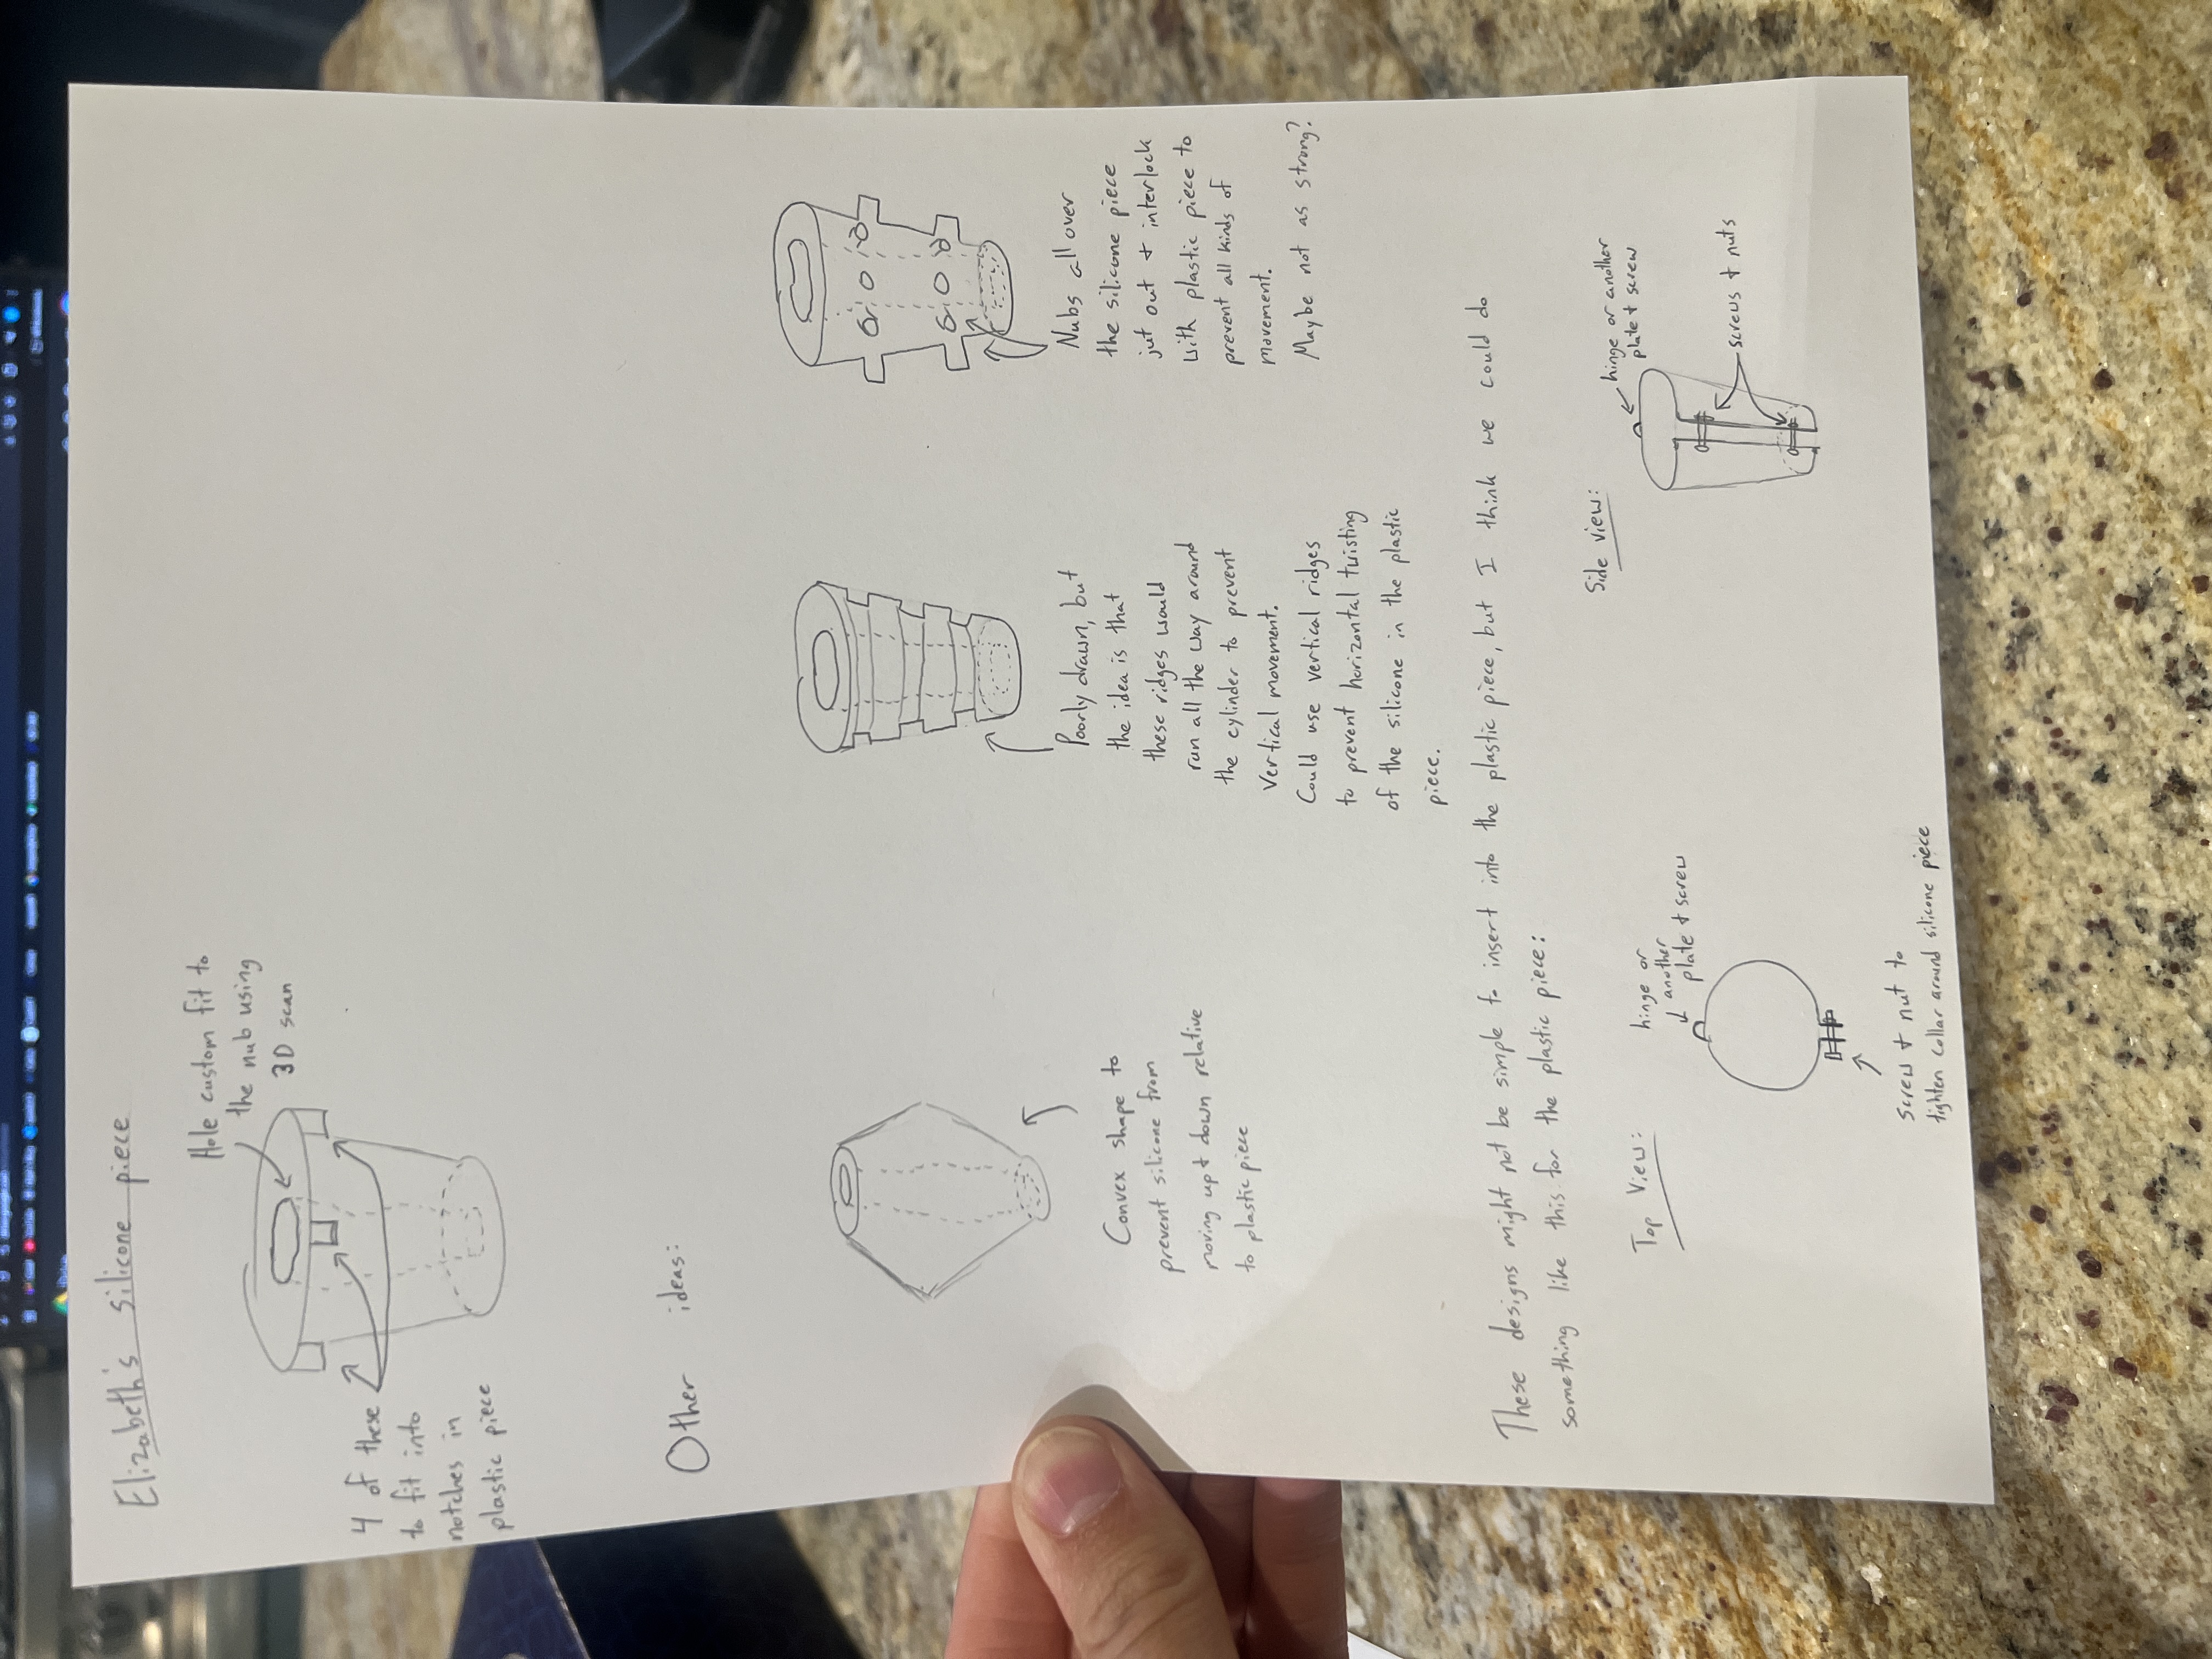 Elizabeth's silicone piece
Hole custom fit to
the nub using
3D scan
4 of these
to fit into
notches in
plastic piece
Other ideas:
Convex shape to
prevent silicone from
moving up + down relative
to plastic piece
Poorly drawn, but
the idea is that
these ridges would
run all the way around
the cylinder to prevent
vertical movement.
Could use vertical ridges
to prevent horizontal twisting
of the silicone in the plastic
piece.
Nubs all over
the silicone piece
jut out + interlock
with plastic piece to
prevent all kinds of
movement.
Maybe not as strong?
These designs might not be simple to insert into the plastic piece, but I think we could do
something like this for the plastic piece:
Top View:
hinge or
another
plate + screw
screw + nut to
tighten collar around silicone piece
Side view:
hinge or another
plate + screw
screws + nuts